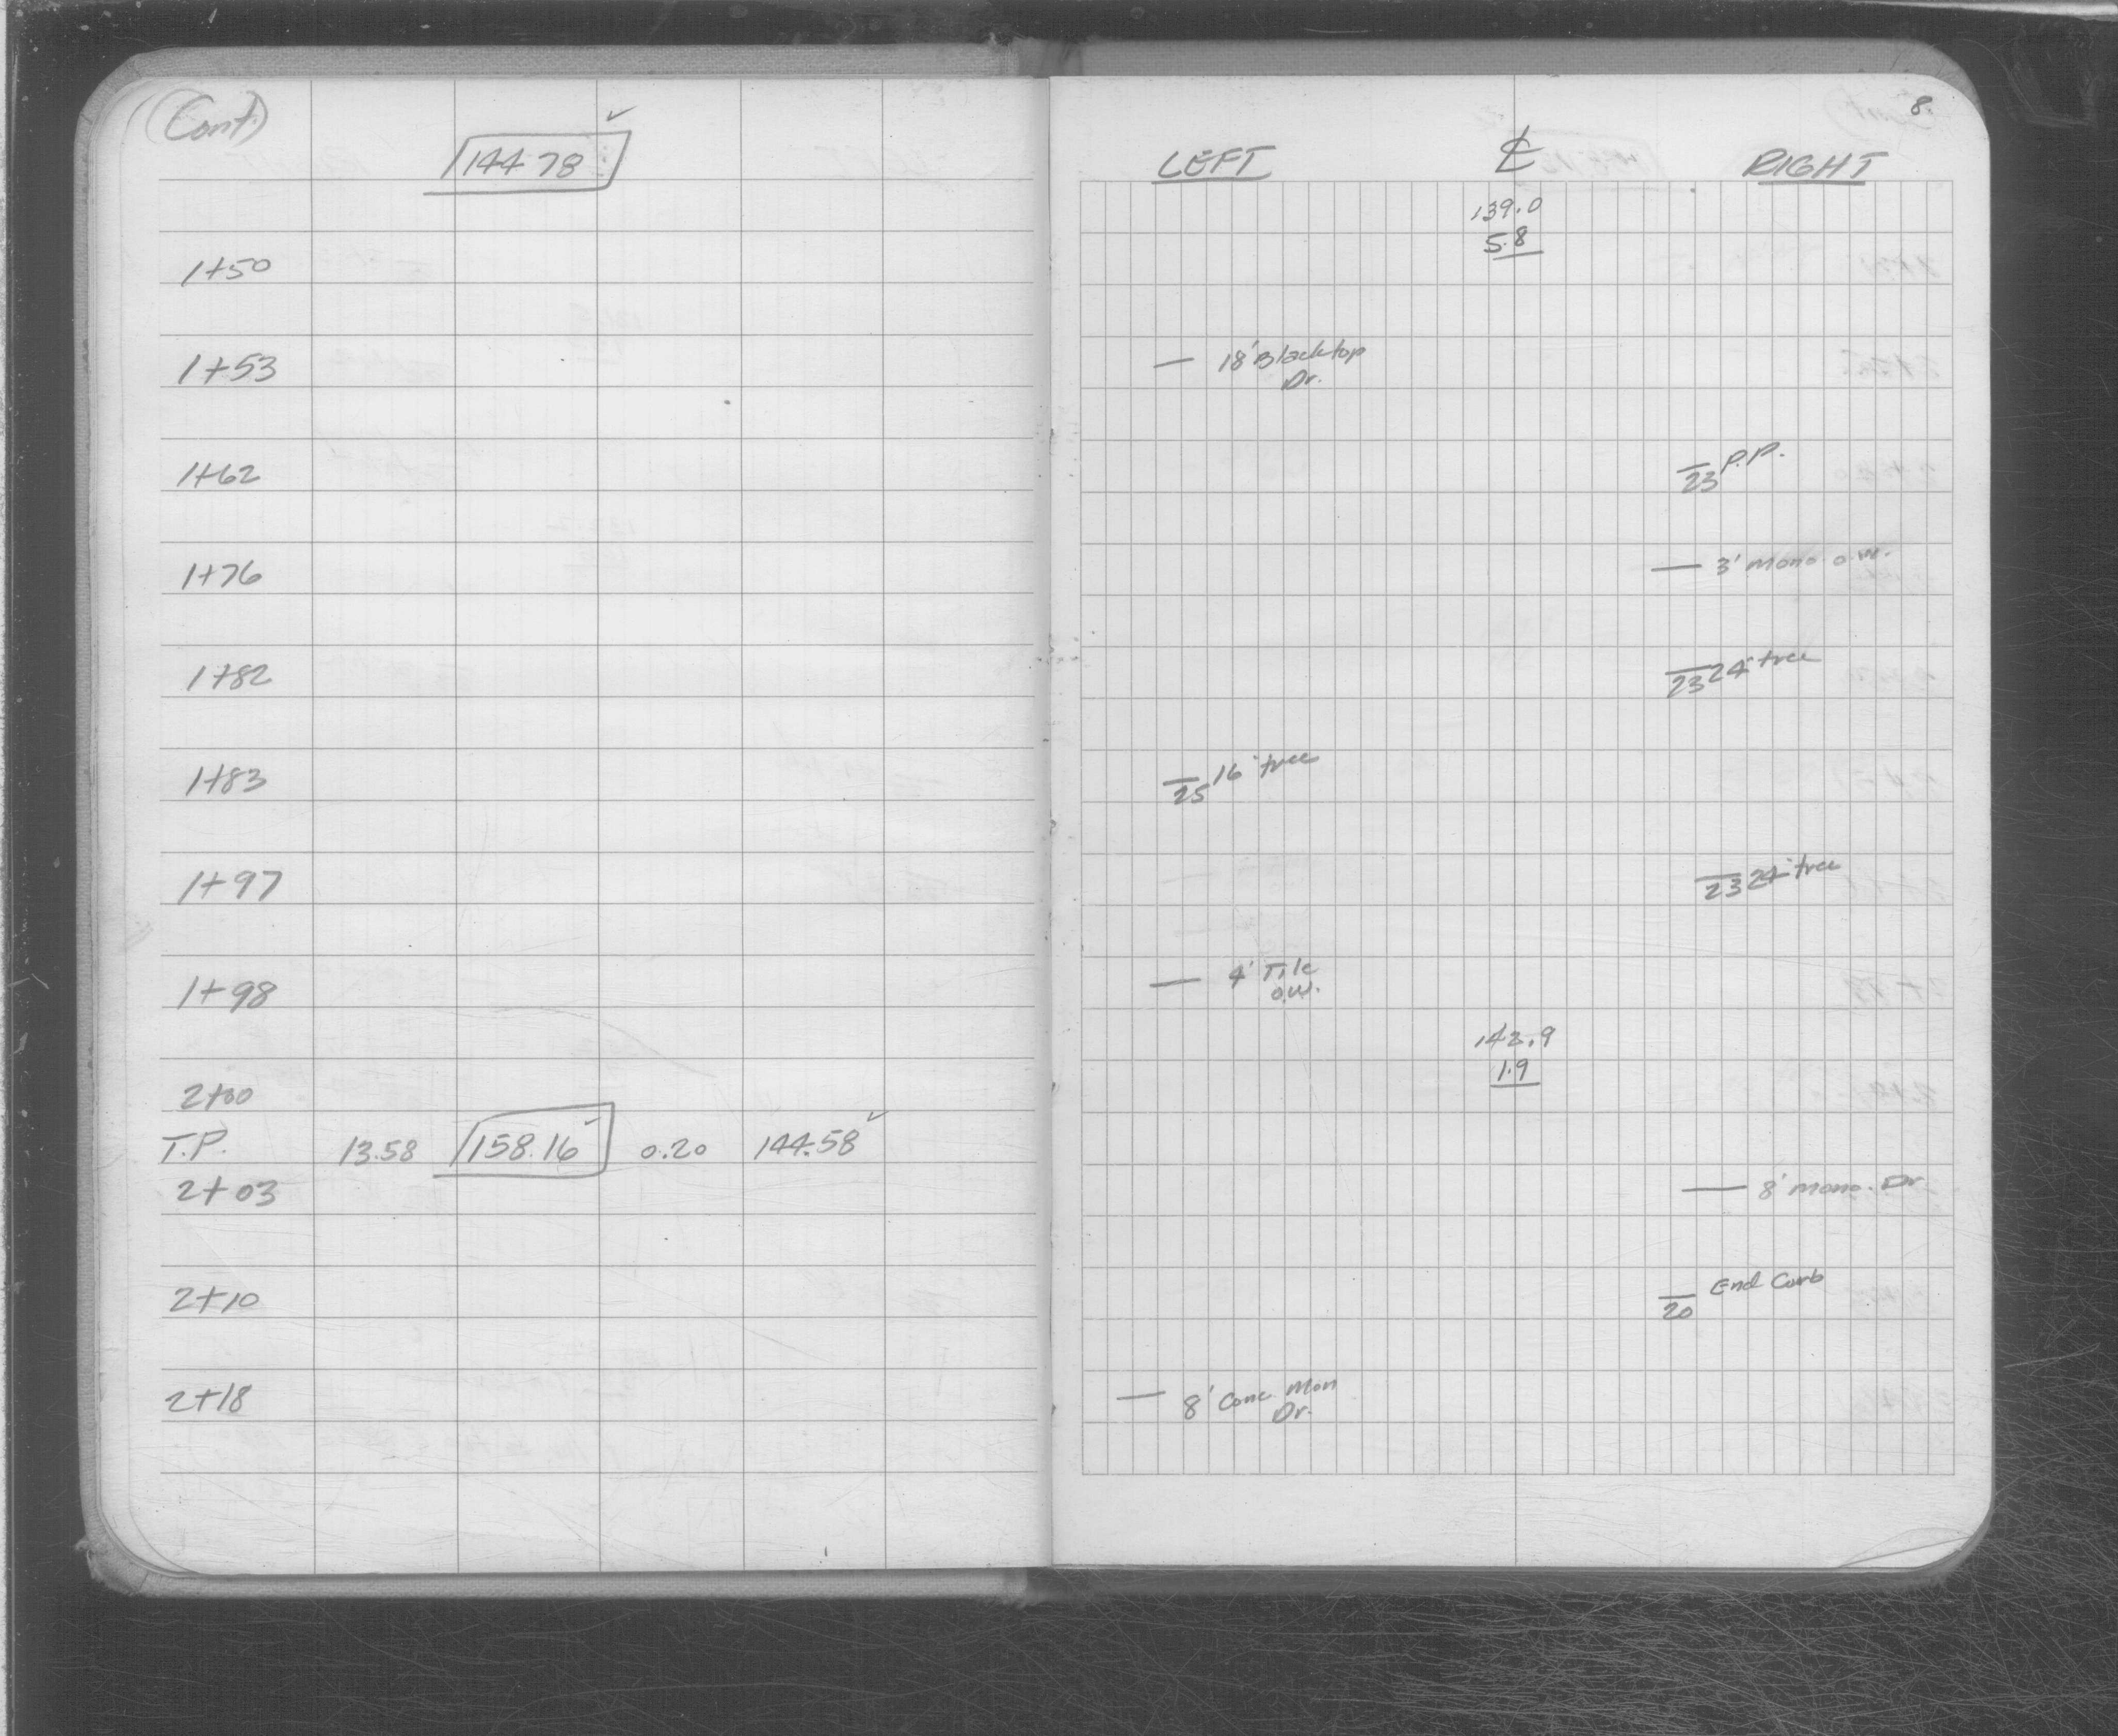 (Cont.)
144.78 ✓
1+50
1+53
1+62
1+76
1+82
1+83
1+97
1+98
2+00
T.P. 13.58 158.16 ✓ 0.20 144.58 ✓
2+03
2+10
2+18
8.
LEFT ℄ RIGHT
139.0
5.8
— 18' Blacktop
Dr.
23 P.P.
— 3' mono o.w.
23 24" tree
25 16" tree
23 24" tree
— 4' Tile
o.w.
142.9
1.9
— 8' mono. Dr
20 End Curb
— 8' Conc. Mon
Dr.